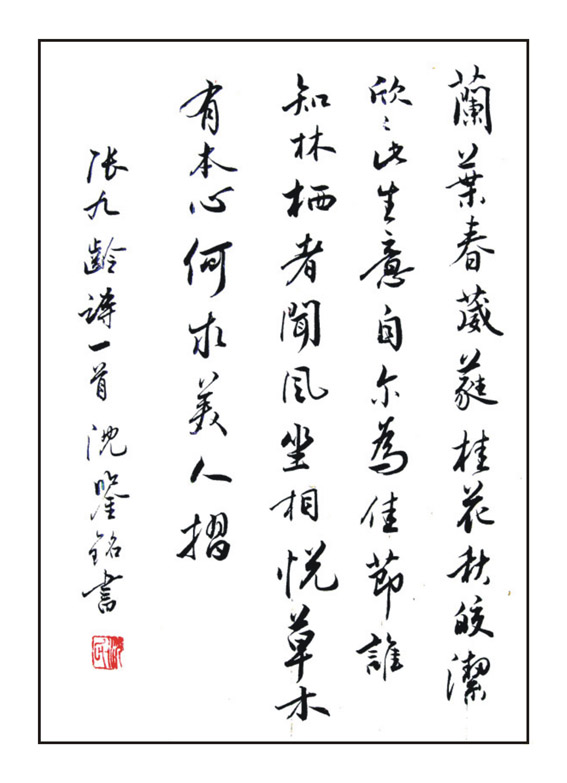 蘭葉春葳蕤桂花秋皎潔
欣〻此生意自尔為佳節誰
知林栖者聞風坐相悦草木
有本心何求美人摺
張九齡詩一首沈鑒銘書